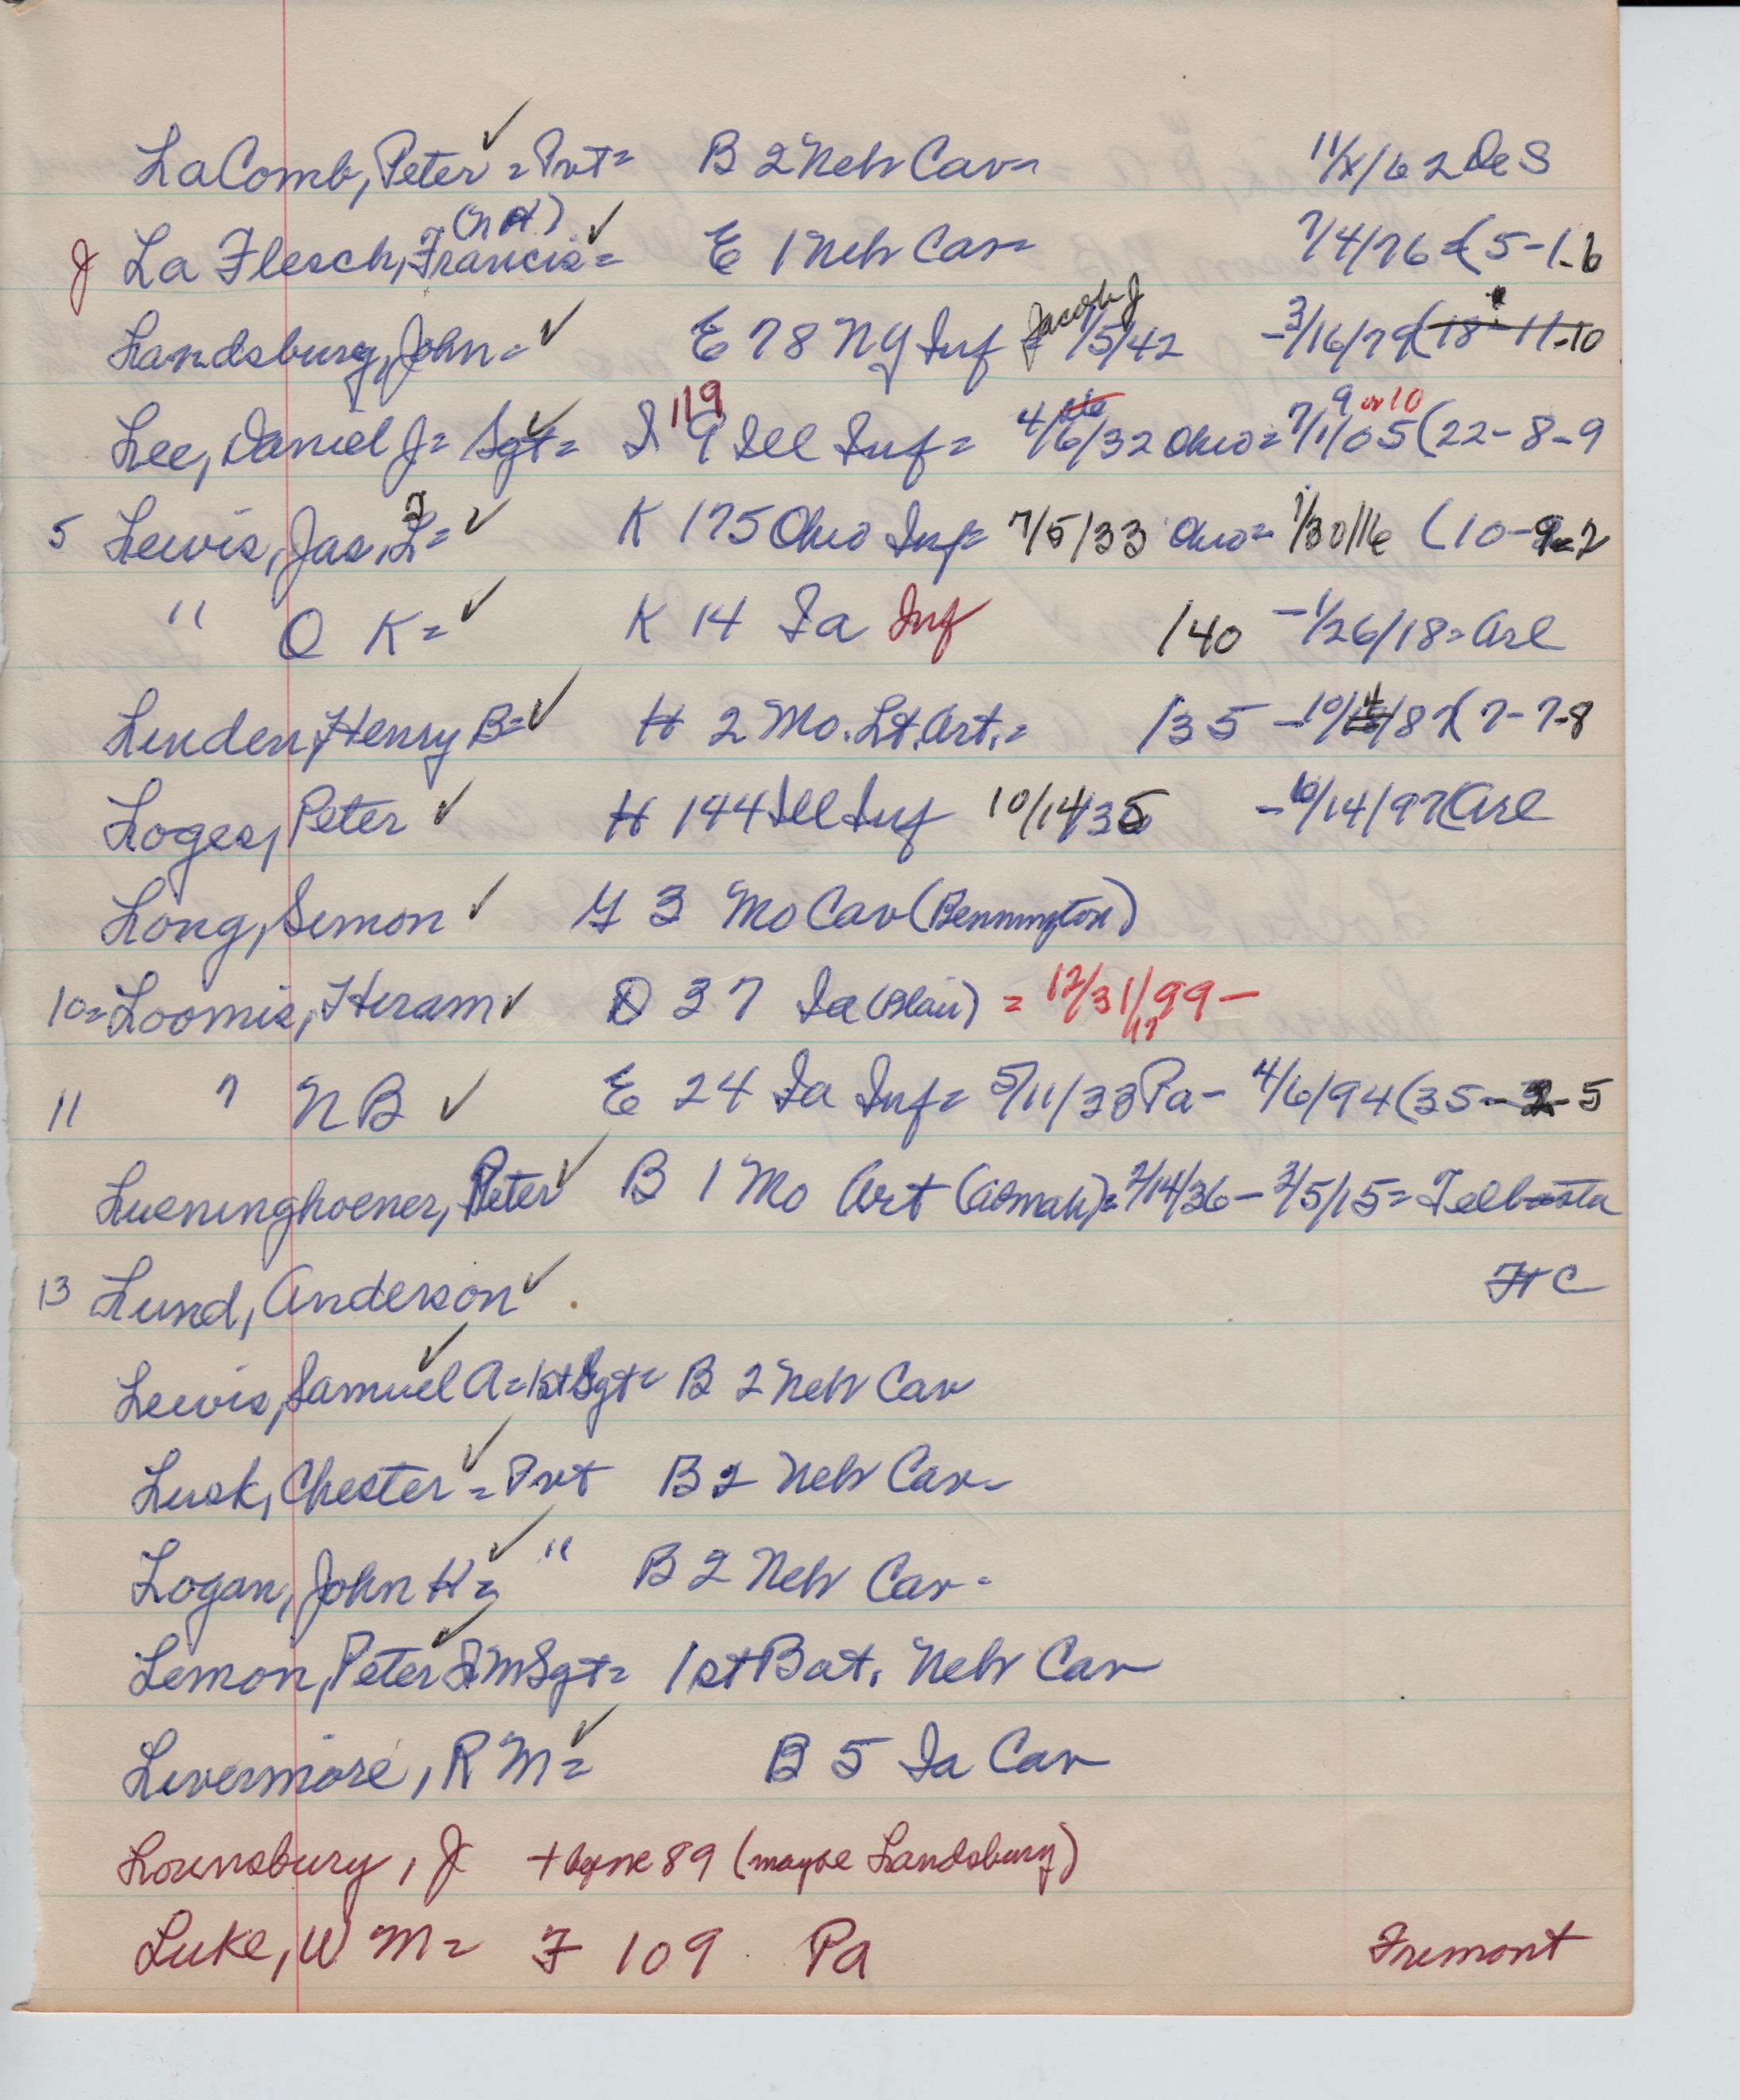 LaComb, Peter ✓ = Pvt = B 2 Neb Cav = 11/X/62 De S
J La Flesch, Francis = ✓ E 1 Neb Cav = 7/4/76 = (5-1-6
Landsburg, John = ✓ E 78 NY Inf = Jacob J 1/5/42 - 3/16/79 (18-11-10
Lee, Daniel J = Sgt = ✓ I 119 Ill Inf = 4/6/32 Ohio = 7/1/05 9 or 10 (22-8-9
5 Lewis, Jas. = ✓ K 175 Ohio Inf = 7/5/33 Ohio = 1/30/16 (10-9-2
" O K = ✓ K 14 Ia Inf /40 - 1/26/18 = Arl
Linden, Henry B = ✓ H 2 Mo. Lt. Art. = /35 - 10/14/87 (7-7-8
Loges, Peter ✓ H 144 Ill Inf 10/14/35 - 10/14/97 (Arl
Long, Simon ✓ G 3 Mo Cav (Bennington)
10 = Loomis, Hiram ✓ D 37 Ia (Blair) = 12/31/99 -
11 " N B ✓ E 24 Ia Inf = 5/11/33 Pa - 4/6/94 (35-2-5
Lueninghoener, Peter ✓ B 1 Mo Art = 2/14/36 - 3/5/15 =
13 Lund, Anderson ✓ . FtC
Lewis, Samuel A = 1st Sgt = ✓ B 2 Neb Cav
Lusk, Chester ✓ = Pvt B 2 Neb Cav -
Logan, John H = ✓ " B 2 Neb Cav -
Lemon, Peter ✓ QMSgt = 1st Bat. Neb Cav
Livermore, R M = ✓ B 5 Ia Cav
Lounsbury, J 89 (maybe Landsburg)
Luke, W M = F 109 Pa Fremont